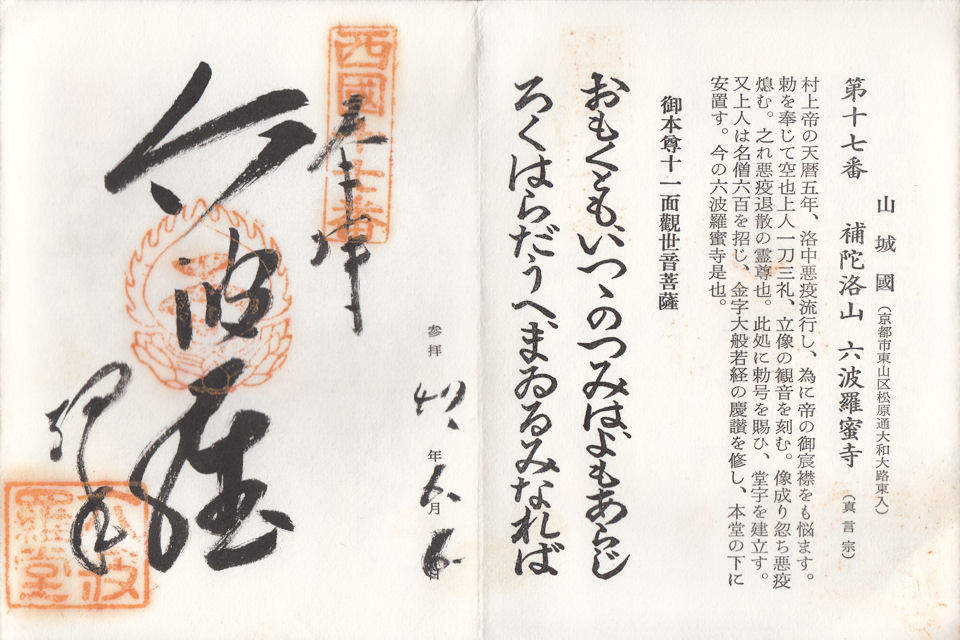 第十七番　補陀洛山　六波羅蜜寺（真言宗）
山城國（京都市東山区松原通大和大路東入）
村上帝の天暦五年、洛中悪疫流行し、為に帝の御宸襟をも悩ます。
勅を奉じて空也上人一刀三礼、立像の観音を刻む。像成り忽ち悪疫
熄む。之れ悪疫退散の霊尊也。此処に勅号を賜ひ、堂宇を建立す。
又上人は名僧六百を招じ、金字大般若経の慶讃を修し、本堂の下に
安置す。今の六波羅蜜寺是也。
御本尊十一面觀世音菩薩
おもくとも、いつゝのつみは、よもあらじ
ろくはらだうへ、まゐるみなれば
参拝　年六月六日
西國十七番
奉拝
六波羅
六波
羅堂